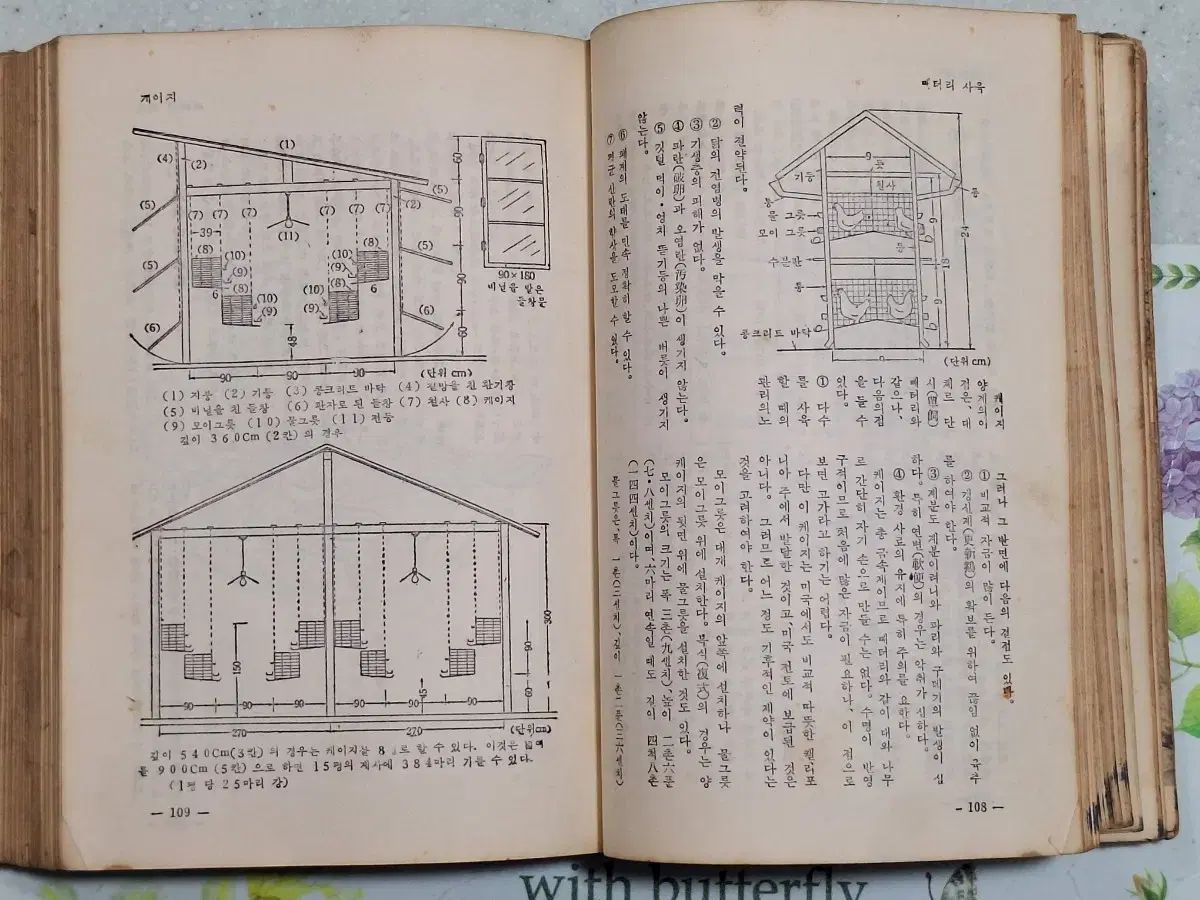 빼터리 사육
9
못
기둥
철사
통
통
물 그릇
모이 그릇
통
수분판
통
콩크리트 바닥
9
18
24
9
9
(단위cm)
케이지
양계의 이
점은, 대
체르 단
시(個飼)
빼터리와
같으나,
다음의 점
을 들 수
있다.
① 다수
를 사육
할 때의
관리의 노
력이 절약된다.
② 닭의 전염병의 발생을 막을 수 있다.
③ 기생충의 피해가 없다.
④ 파란(破卵)과 오염란(汚染卵)이 생기지 않는다.
⑤ 깃털 먹이·엉치 뜯기등의 나쁜 버릇이 생기지
않는다.
⑥ 폐계의 도태를 민속 정확히 할 수 있다.
⑦ 계군 산란의 향상을 도모할 수 있다.
그러나 그 반면에 다음의 결점도 있다.
① 비교적 자금이 많이 든다.
② 갱신계(更新鷄)의 확보를 위하여 끊임 없이 육추
를 하여야 한다.
③ 제분도 계분이려니와 파리와 구데기의 발생이 심
하다. 특히 연변(軟便)의 경우는 악취가 심하다.
④ 환경 사료의 유지에 특히 주의를 요한다.
케이지는 총 금속제이므로 빼터리와 같이 대와 나무
르 간단히 자기 손으로 만들 수는 없다. 수명이 반영
구적이므로 처음에 많은 자금이 필요하나, 이 점으로
보면 고가라고 하기는 어렵다.
다만 이 케이지는 미국에서도 비교적 따뜻한 캘리포
니아 주에서 발달한 것이고, 미국 전토에 보급된 것은
아니다. 그러므로 어느 정도 기후적인 제약이 있다는
것을 고려하여야 한다.
모이그릇은 대개 케이지의 앞쪽에 설치하나 물그릇
은 모이그릇 위에 설치한다. 복식(復式)의 경우는 양
케이지의 뒷면 위에 물그릇을 설치한 것도 있다.
모이그릇의 크기는 폭 三촌(九센치), 높이 二촌六푼
(七·八센치)이며, 六마리 연속일 때도 길이 四척八촌
(一四四센치)이다.
물그릇은, 폭 一촌(三센치), 깊이 一촌二푼(三六센치)
— 108 —
케이지
(1)
(4)
(2)
(5)
(5)
(6)
(7)
(7)
(7)
(7)
(7)
39
(8)
(10)
(9)
(8)
6
(10)
(9)
(11)
(8)
(10)
(9)
(8)
6
(10)
(9)
48
(5)
(2)
(5)
(6)
60
90
90
60
90
90
90
(단위 cm)
90×180
비닐을 발은
들창문
(1) 지붕 (2) 기둥 (3) 콩크리트 바닥 (4) 철망을 친 환기창
(5) 비닐을 친 들창 (6) 판자로 된 들창 (7) 철사 (8) 케이지
(9) 모이그릇 (10) 물그릇 (11) 전등
깊이 360Cm (2칸) 의 경우
150
45
300
90
60
90
90
90
90
90
90
270
270
(단위cm)
깊이 540Cm(3칸) 의 경우는 케이지를 8 로 할 수 있다. 이것은
를 900Cm (5칸) 으로 하면 15평의 계사에 384마리 가를 수 있다.
(1평 당 25마리 강)
— 109 —
with butterfly